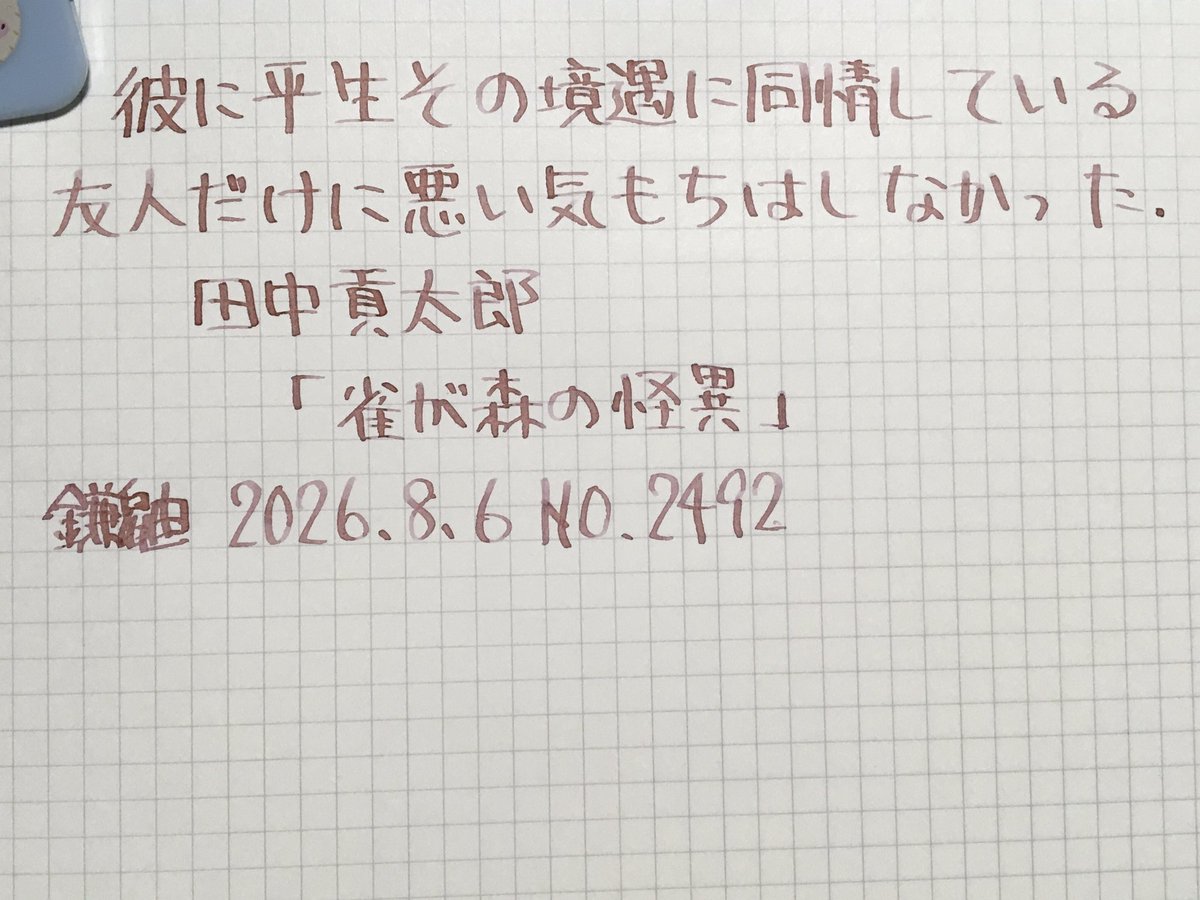 彼に平生その境遇に同情している
友人だけに悪い気もちはしなかった.
田中貢太郎
「雀が森の怪異」
2026.8.6 NO.2492